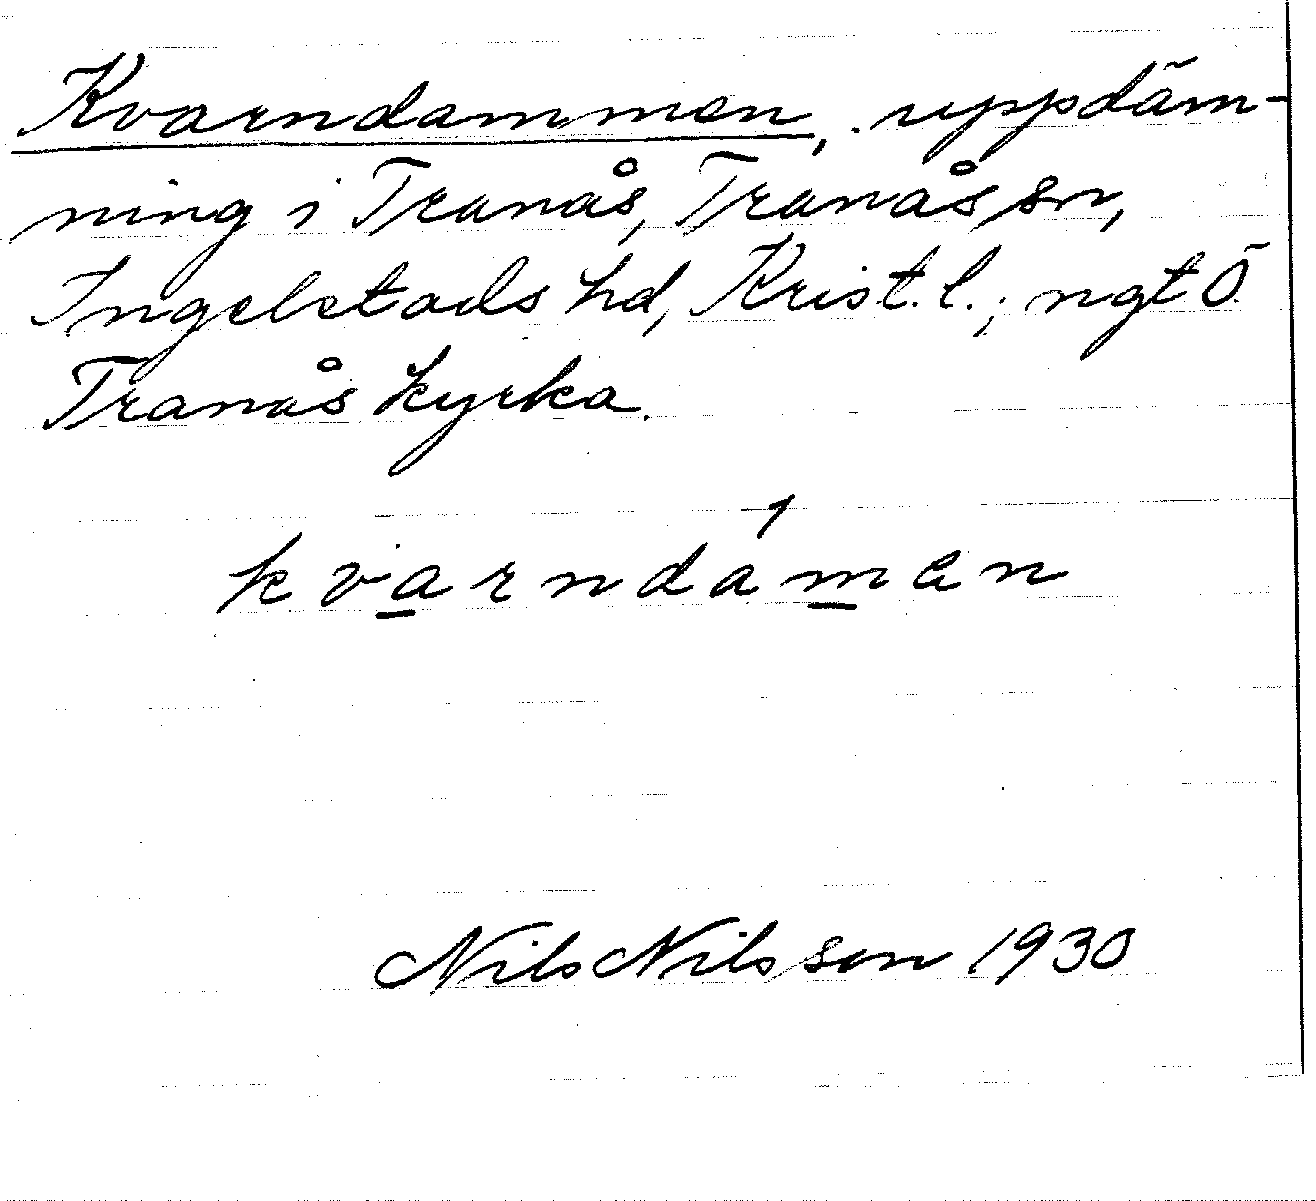 Kvarndammen, uppdäm-
ning i Tranås, Tranås sn,
Ingelstads hd, Krist. l.; ngt Ö
Tranås kyrka.
kvarndámen
Nils Nilsson 1930